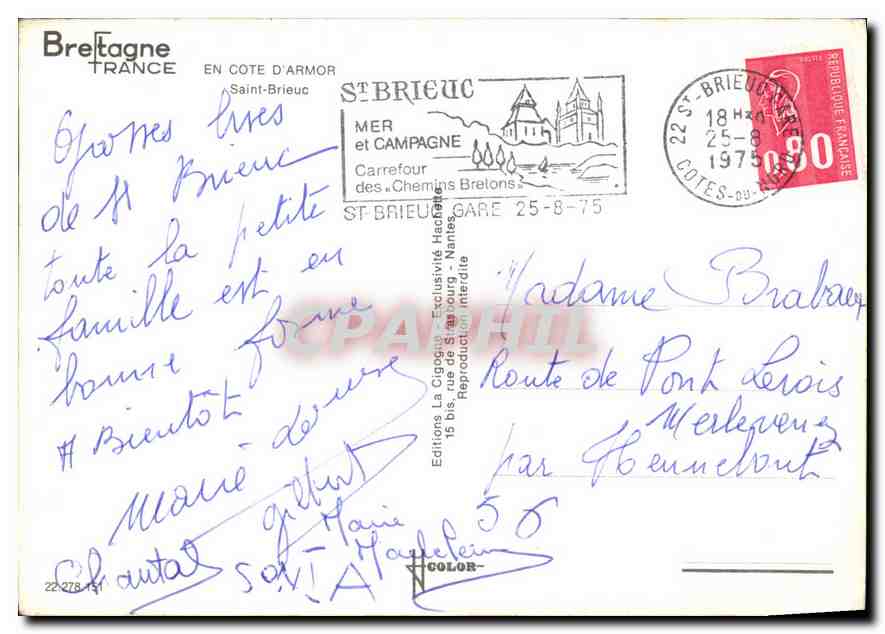 Bretagne
FRANCE
EN COTE D'ARMOR
Saint-Brieuc
Grosses bises
de St Brieuc
toute la petite
famille est en
bonne forme
A Bientôt
Marie Louise
Gilbert
Chantal
Marie
Madeleine
SONIA
22 278 151
ST BRIEUC
MER
et CAMPAGNE
Carrefour
des "Chemins Bretons"
ST-BRIEUC GARE 25-8-75
22 ST-BRIEUC-GARE
18H
25-8
1975
COTES-DU-NORD
REPUBLIQUE FRANÇAISE
0,80
Editions La Cigogne - Exclusivité Hachette
15 bis, rue de Strasbourg - Nantes
Reproduction interdite
CPAPHIL
Madame Brabaux
Route de Pont Lorois
Merlevenez
par Hennebont
56
COLOR